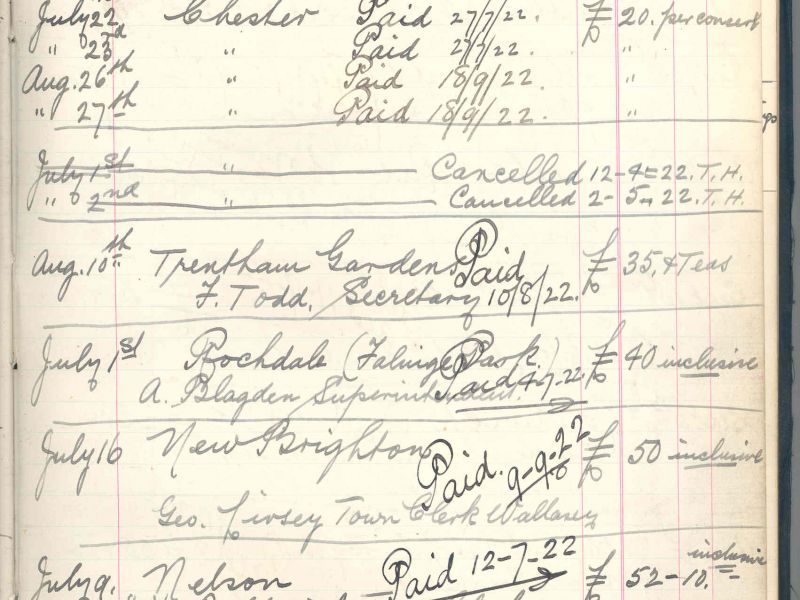 July 22 Chester Paid 27/7/22. £20. per concert
" 23rd " Paid 27/7/22. "
Aug. 26th " Paid 18/9/22. "
" 27th " Paid 18/9/22. "
July 1st " Cancelled 12-4-22. T.H.
" 2nd " Cancelled 2-5-22. T.H.
Aug. 10th Trentham Gardens Paid £35. & Teas
F. Todd, Secretary 10/8/22.
July 1st Rochdale (Falinge Park.) £40 inclusive
A. Blagden Superintendent. Paid 4-7-22.
July 16 New Brighton Paid. 9-9-22 £50 inclusive
Geo. Livsey Town Clerk Wallasey
inclusive
July 9. Nelson Paid 12-7-22 £52-10.-